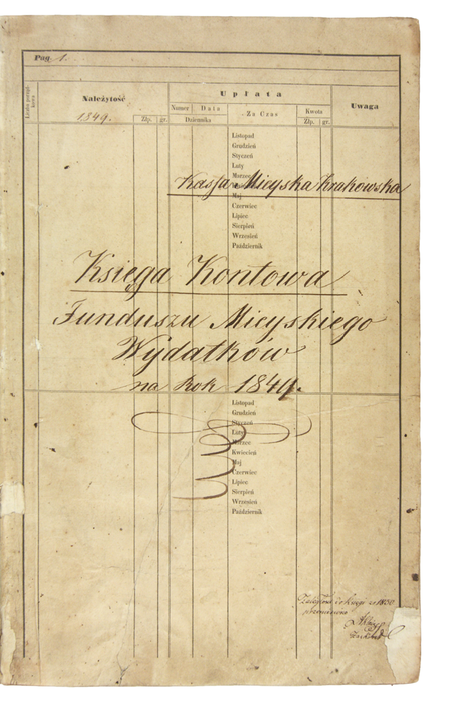 Pag 1.
Liczba porząd-
kowa
Należytość
Upłata
Uwaga
Numer
Data
Za Czas
Kwota
1849.
Złp.
gr.
Dziennika
Złp.
gr.
Listopad
Grudzień
Styczeń
Luty
Marzec
Kassa Mieyska Krakowska
Maj
Czerwiec
Lipiec
Sierpień
Wrzesień
Październik
Księga Kontowa
Funduszu Mieyskiego
Wydatków
na Rok 1849.
Listopad
Grudzień
Styczeń
Luty
Marzec
Kwiecień
Maj
Czerwiec
Lipiec
Sierpień
Wrzesień
Październik
do Księgi